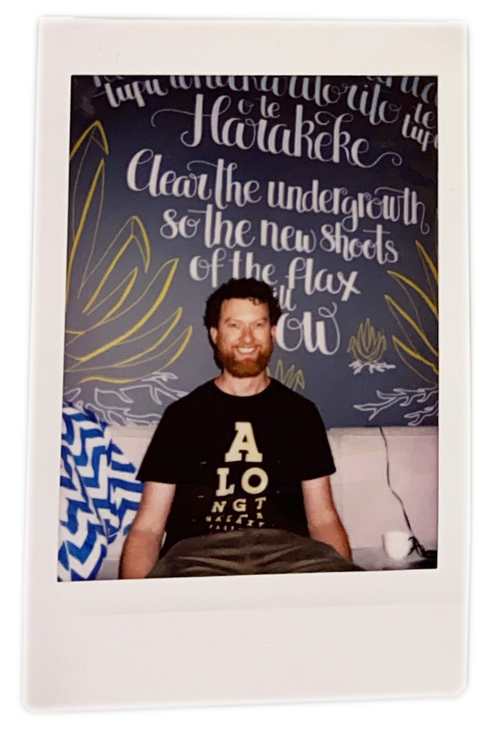 tupu whakaritorito te
tupu
o te
Harakeke
Clear the undergrowth
so the new shoots
of the flax
ill
ow
A
LO
NGT